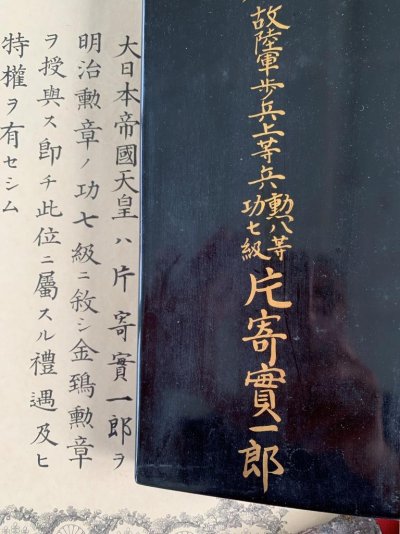 故陸軍歩兵上等兵勲八等功七級片寄實一郎
大日本帝國天皇ハ片寄實一郎ヲ
明治勲章ノ功七級ニ敘シ金鵄勲章
ヲ授與ス即チ此位ニ屬スル禮遇及ヒ
特權ヲ有セシム